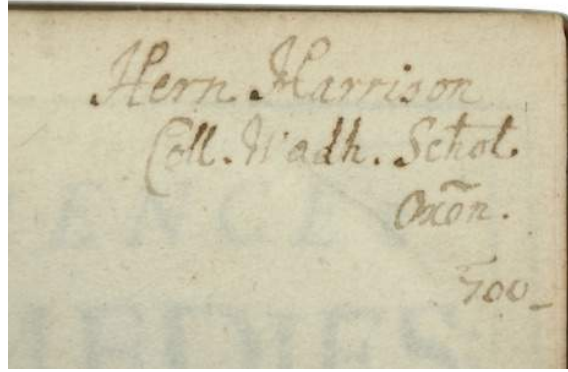 Hern Harrison
Coll. Wadh. Schol.
Oxon.
700_